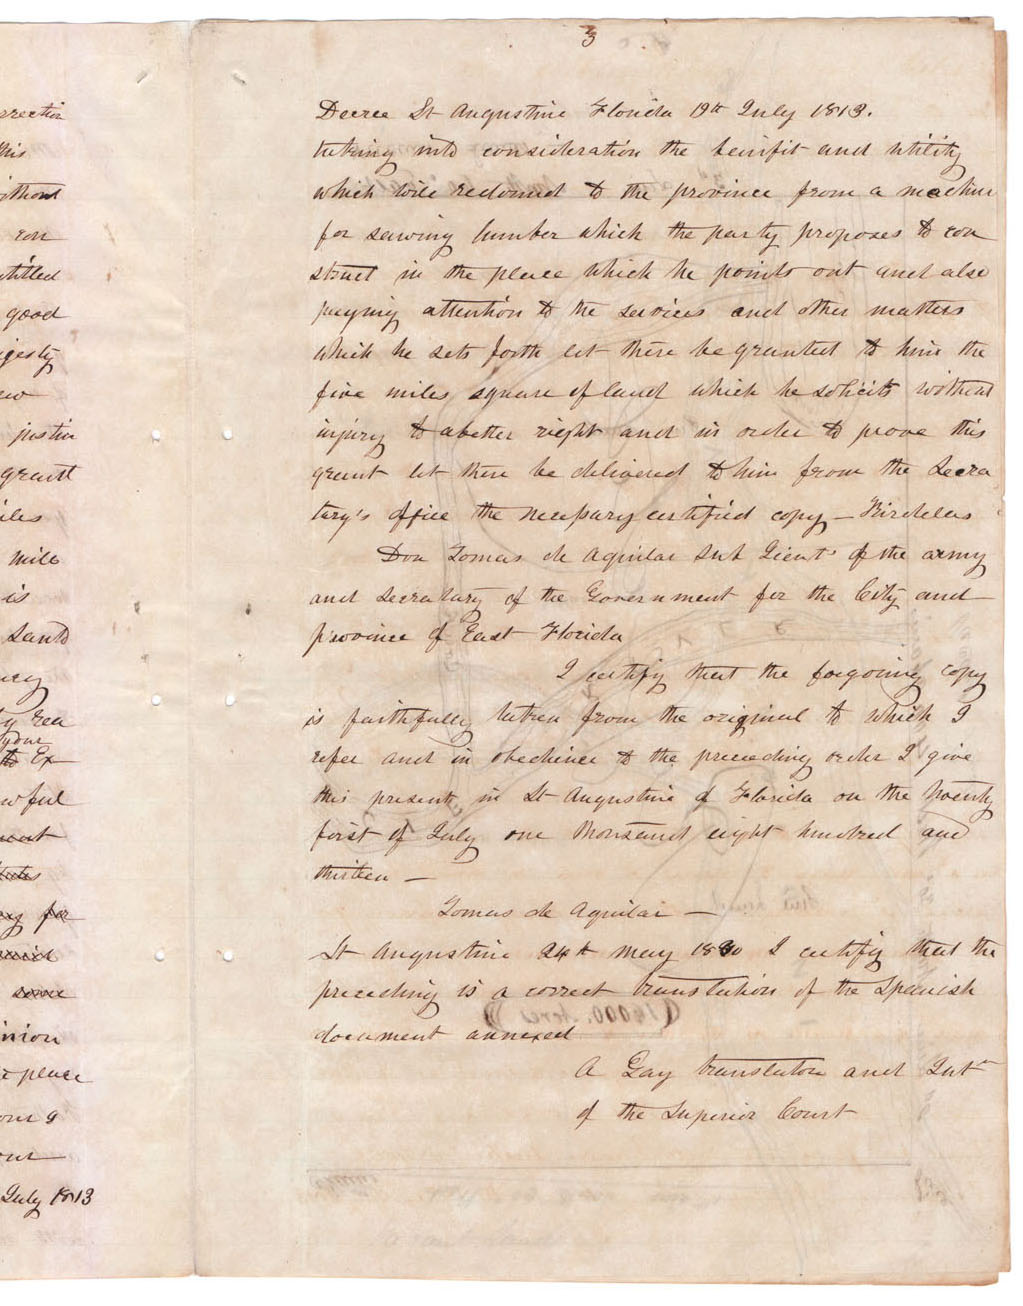 3
Decree St Augustine Florida 19th July 1813.
taking into consideration the benifit and utility
which will redound to the province from a machine
for sawing lumber which the party proposes to con
struct in the place which he points out and also
paying attention to the services and other matters
which he sets forth let there be granted to him the
five miles square of land which he solicits without
injury to a better right and in order to prove this
grant let there be delivered to him from the Secra
tary's office the necessary certified copy — Kindelan
Don Tomas de Aguilar Sub Lieut of the army
and Secratary of the Government for the City and
province of East Florida
I certify that the forgoing copy
is faithfully taken from the original to which I
refer and in obedience to the preceeding order I give
this present in St Augustine of Florida on the twenty
first of July one thousand eight hundred and
thirteen —
Tomas de Aguilar —
St Augustine 24th may 1830 I certify that the
preceeding is a correct translation of the Spanish
document annexed
A Gay translator and Intr
of the Superior Court
rrection
this
ithout
con
ntitled
good
ajesty
ew
justice
grant
iles
mill
is
Land
ency
ty rea
your
to Ex
wful
for
inion
place
our
July 1813
(16000. Acres)